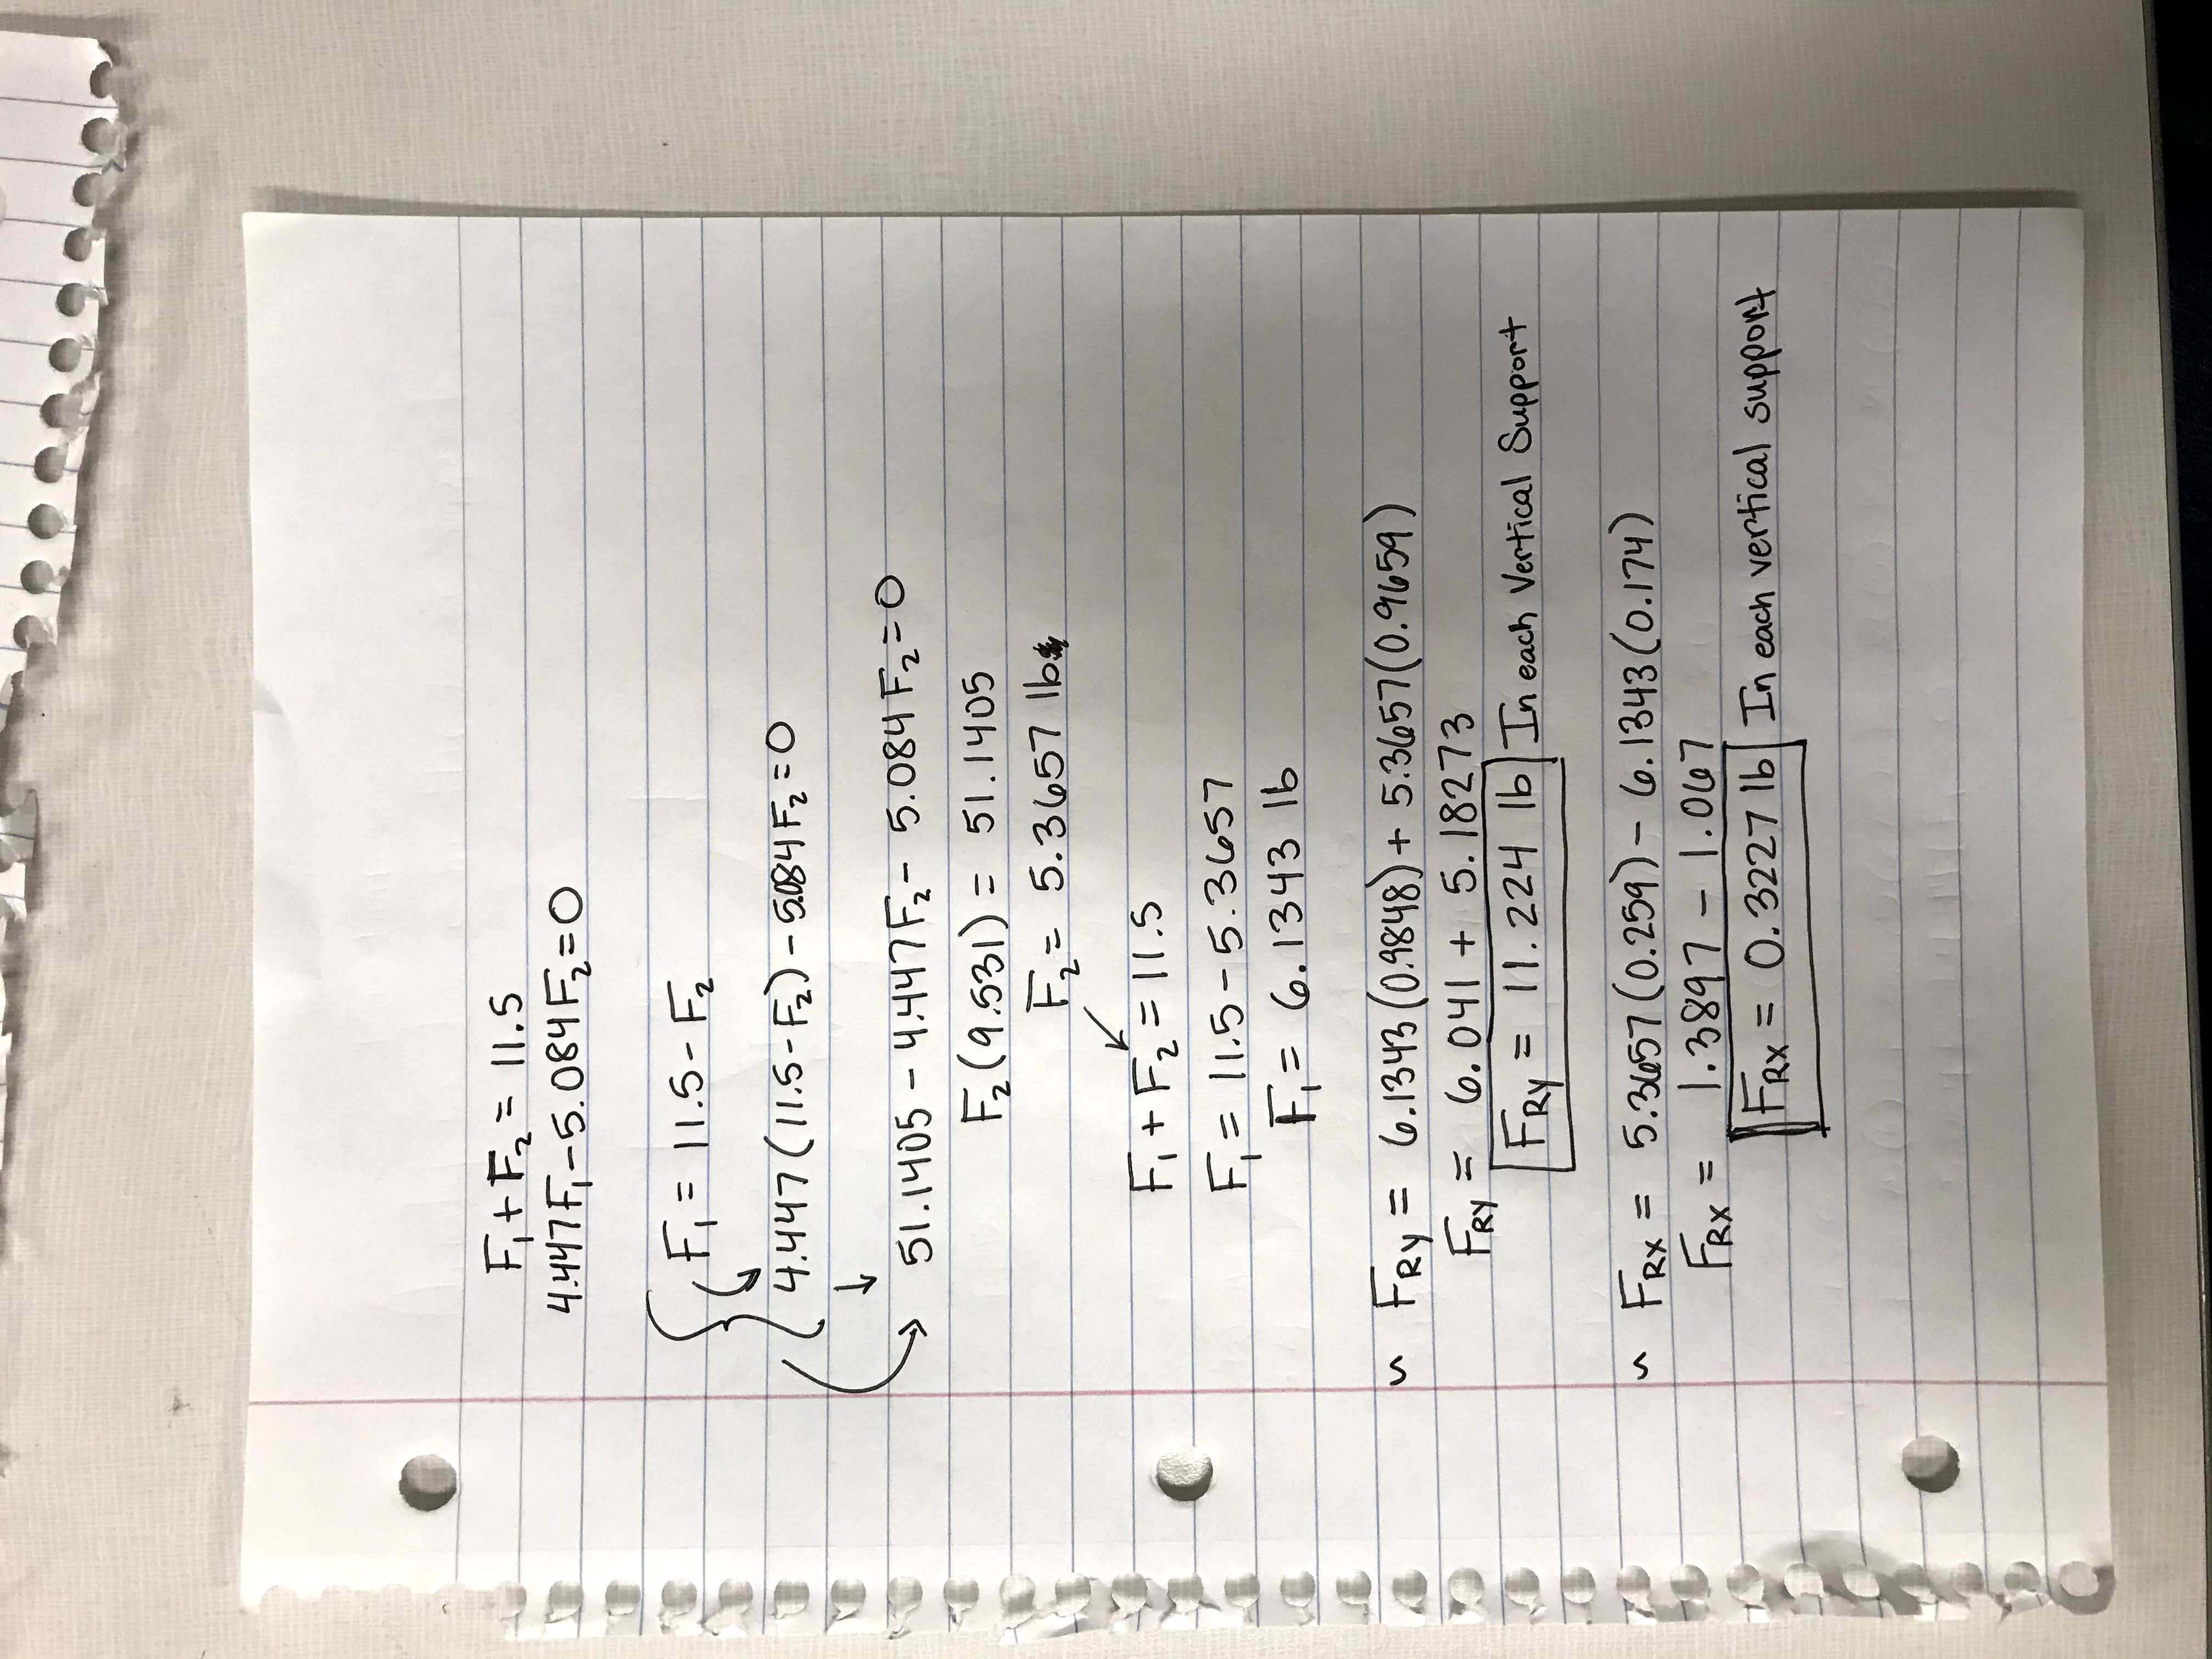 F₁ + F₂ = 11.5
4.447F₁ - 5.084F₂ = 0
F₁ = 11.5 - F₂
4.447(11.5 - F₂) - 5.084F₂ = 0
51.1405 - 4.447F₂ - 5.084F₂ = 0
F₂(9.531) = 51.1405
F₂ = 5.3657 lb
F₁ + F₂ = 11.5
F₁ = 11.5 - 5.3657
F₁ = 6.1343 lb
~ FRy = 6.1343(0.9848) + 5.3657(0.9659)
FRY = 6.041 + 5.18273
FRy = 11.224 lb In each Vertical Support
~ FRX = 5.3657(0.259) - 6.1343(0.174)
FRX = 1.3897 - 1.067
FRX = 0.3227 lb In each vertical support